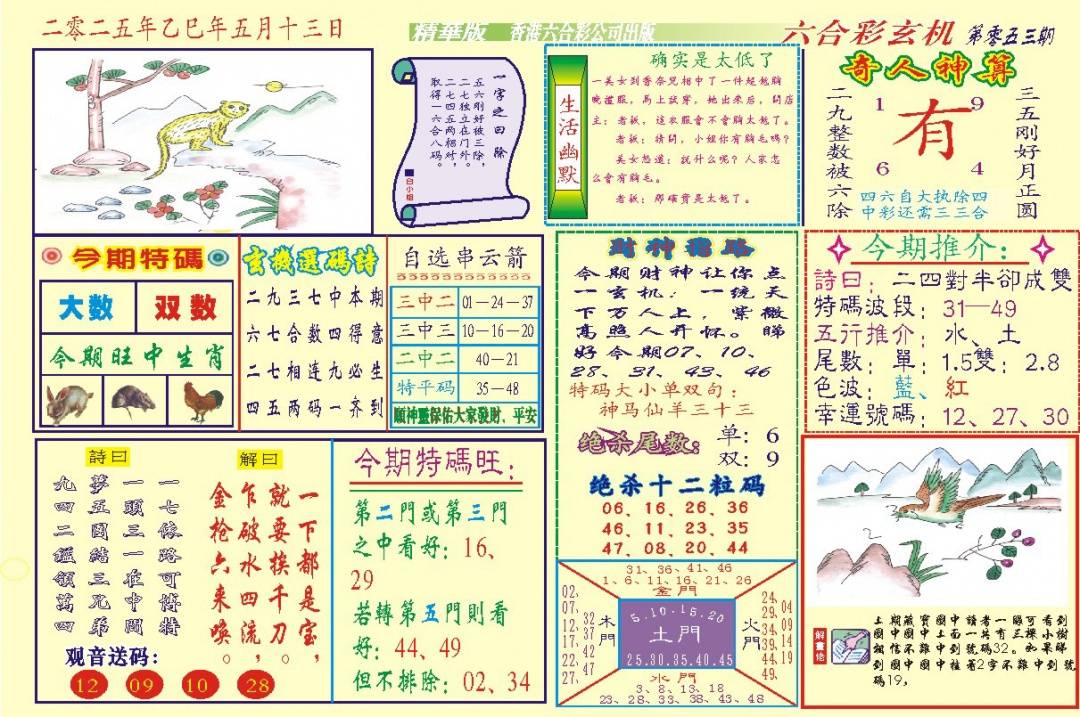 二零二五年乙巳年五月十三日
精華版 香港六合彩公司出版
六合彩玄机 第零五三期
一字之曰除
五六刚好被三除,
二七独立在门外,
二七五两相对,
取得一四六合八码。
白小姐
生活幽默
确实是太低了
一美女到香奈兒相中了一件超低胸
晚禮服,馬上試穿,她出來后,問店
主:老板,這衣服會不會胸太低了。
老板:請問,小姐你有胸毛嗎?
美女怒道:説什么呢?人家怎
么會有胸毛。
老板:那確實是太低了。
奇人神算
二九整数被六除
1 9
有
6 4
三五刚好月正圆
四六自大执除四
中彩还需三三合
今期特碼
大数 双数
今期旺中生肖
玄機選碼詩
二九三七中本期
六七合数四得意
二七相连九必生
四五两码一齐到
自选串云箭
三中二 01—24—37
三中三 10—16—20
二中二 40—21
特平码 35—48
順神靈保佑大家發財、平安
财神指路
今期财神让你点
一玄机:一统天
下万人上,紫微
高照人开怀。睇
好今期07、10、
28、31、43、46
特码大小单双句:
神马仙羊三十三
绝杀尾数: 单:6
双:9
绝杀十二粒码
06、16、26、36
46、11、23、35
47、08、20、44
今期推介:
詩曰:二四對半卻成雙
特碼波段:31—49
五行推介:水、土
尾數:單:1.5雙:2.8
色波:藍、紅
幸運號碼:12、27、30
詩曰
一七條路可博特
一頭三一在中間
夢五圖結三兄弟
九四二鑑領萬四
解曰
一下都是宝,
就要挨千刀。
乍破水四流,
金枪六来唤。
观音送码:
12 09 10 28
今期特碼旺:
第二門或第三門
之中看好:16、
29
若轉第五門則看
好:44、49
但不排除:02、34
31、36、41、46
1、6、11、16、21、26
金門
02、07、12、17、22、27、
32、37、42、47
木門
5.10.15.20
土門
25.30.35.40.45
火門
24、29、34、39、44、49
04、09、14、19
水門
3、8、13、18
23、28、33、38、43、48
解畫佬
上期藏寶圖中讀者一睇可看到
圖中圖中上面一共有三棵小樹
相信不難中到號碼32。如果睇
到圖中圖中藏著2字不難中到號
碼19,